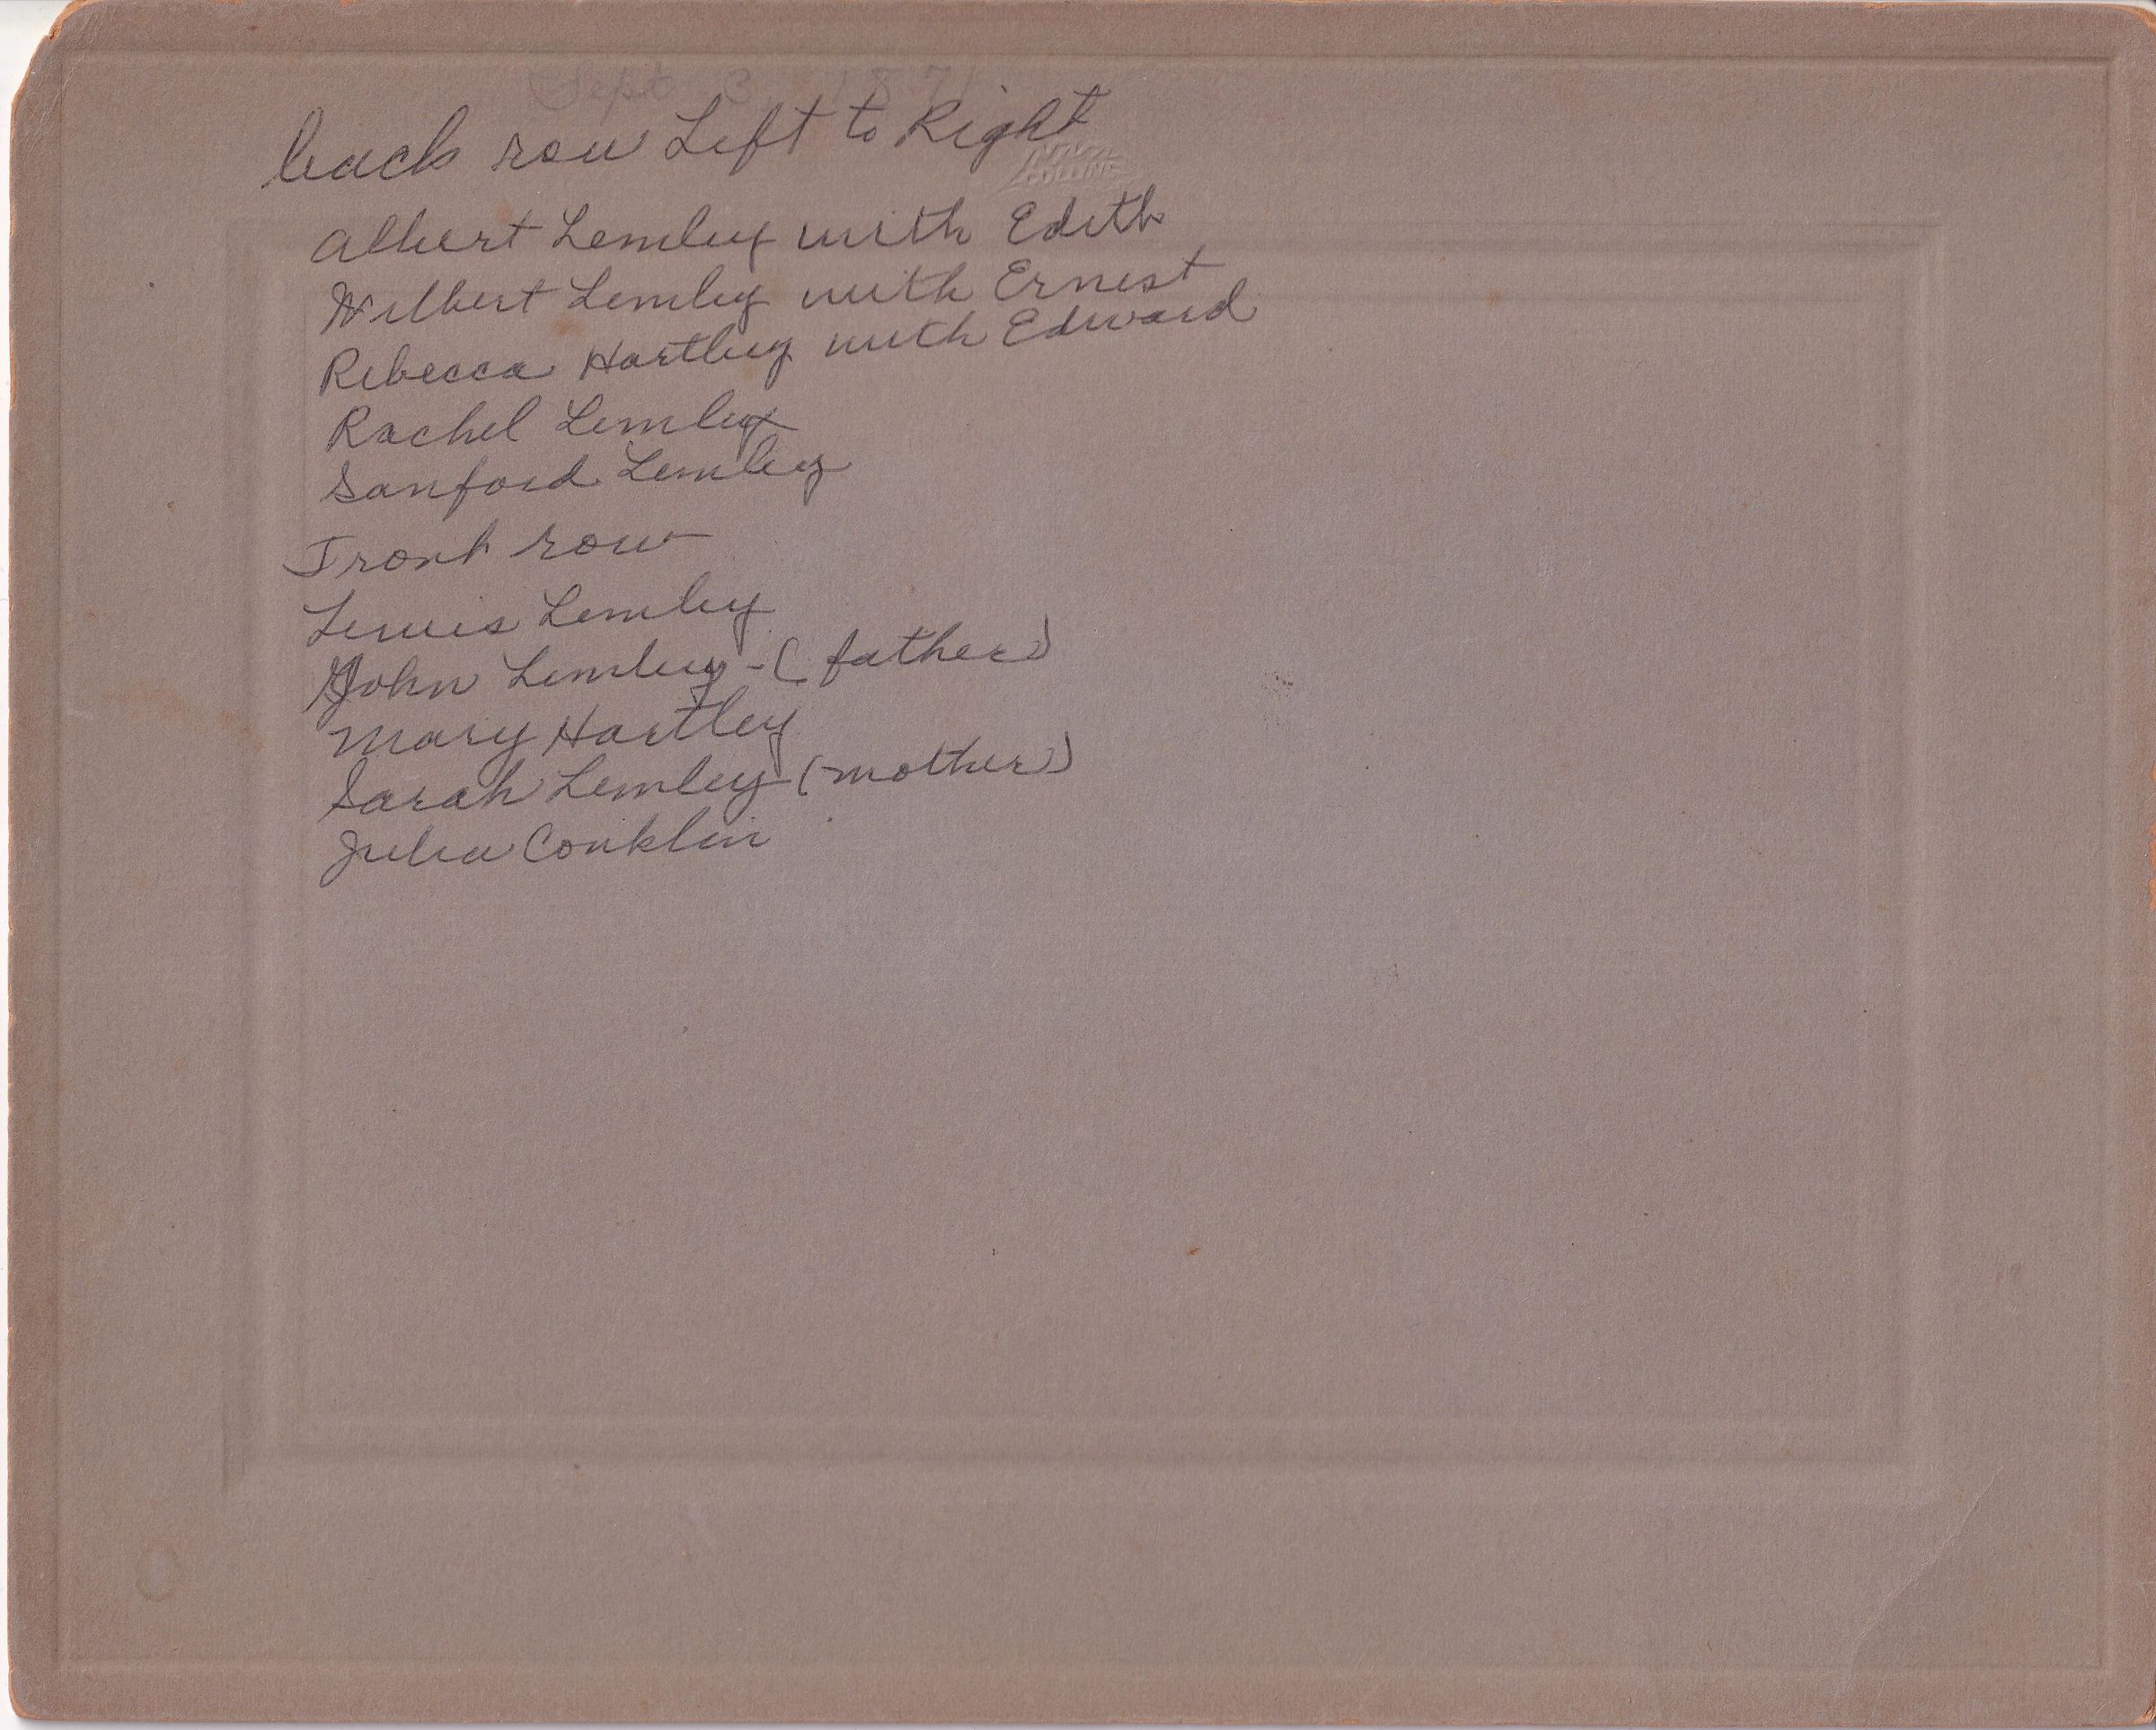 Sept 3, 187
back row Left to Right
Albert Lemley with Edith
Wilbert Lemley with Ernest
Rebecca Hartley with Edward
Rachel Lemley
Sanford Lemley
Front row
Lewis Lemley
John Lemley - (father)
Mary Hartley
Sarah Lemley (mother)
Julia Conklin